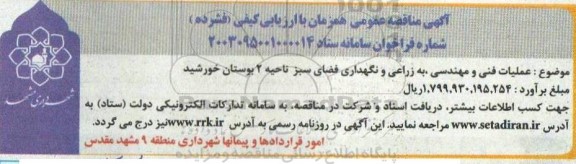 آگهی مناقصه عمومی همزمان با ارزیابی کیفی (فشرده)
شماره فراخوان سامانه ستاد ۲۰۰۳۰۹۵۰۰۱۰۰۰۰۱۴
موضوع : عملیات فنی و مهندسی ،به زراعی و نگهداری فضای سبز ناحیه ۲ بوستان خورشید
مبلغ برآورد : ۱,۷۹۹,۹۳۰,۱۹۵,۲۵۴ریال
جهت کسب اطلاعات بیشتر، دریافت اسناد و شرکت در مناقصه، به سامانه تدارکات الکترونیکی دولت (ستاد) به
آدرس www.setadiran.ir مراجعه نمایید. این آگهی در روزنامه رسمی به آدرس www.rrk.irنیز درج می گردد.
امور قراردادها و پیمانها شهرداری منطقه ۹ مشهد مقدس
شهرداری مشهد